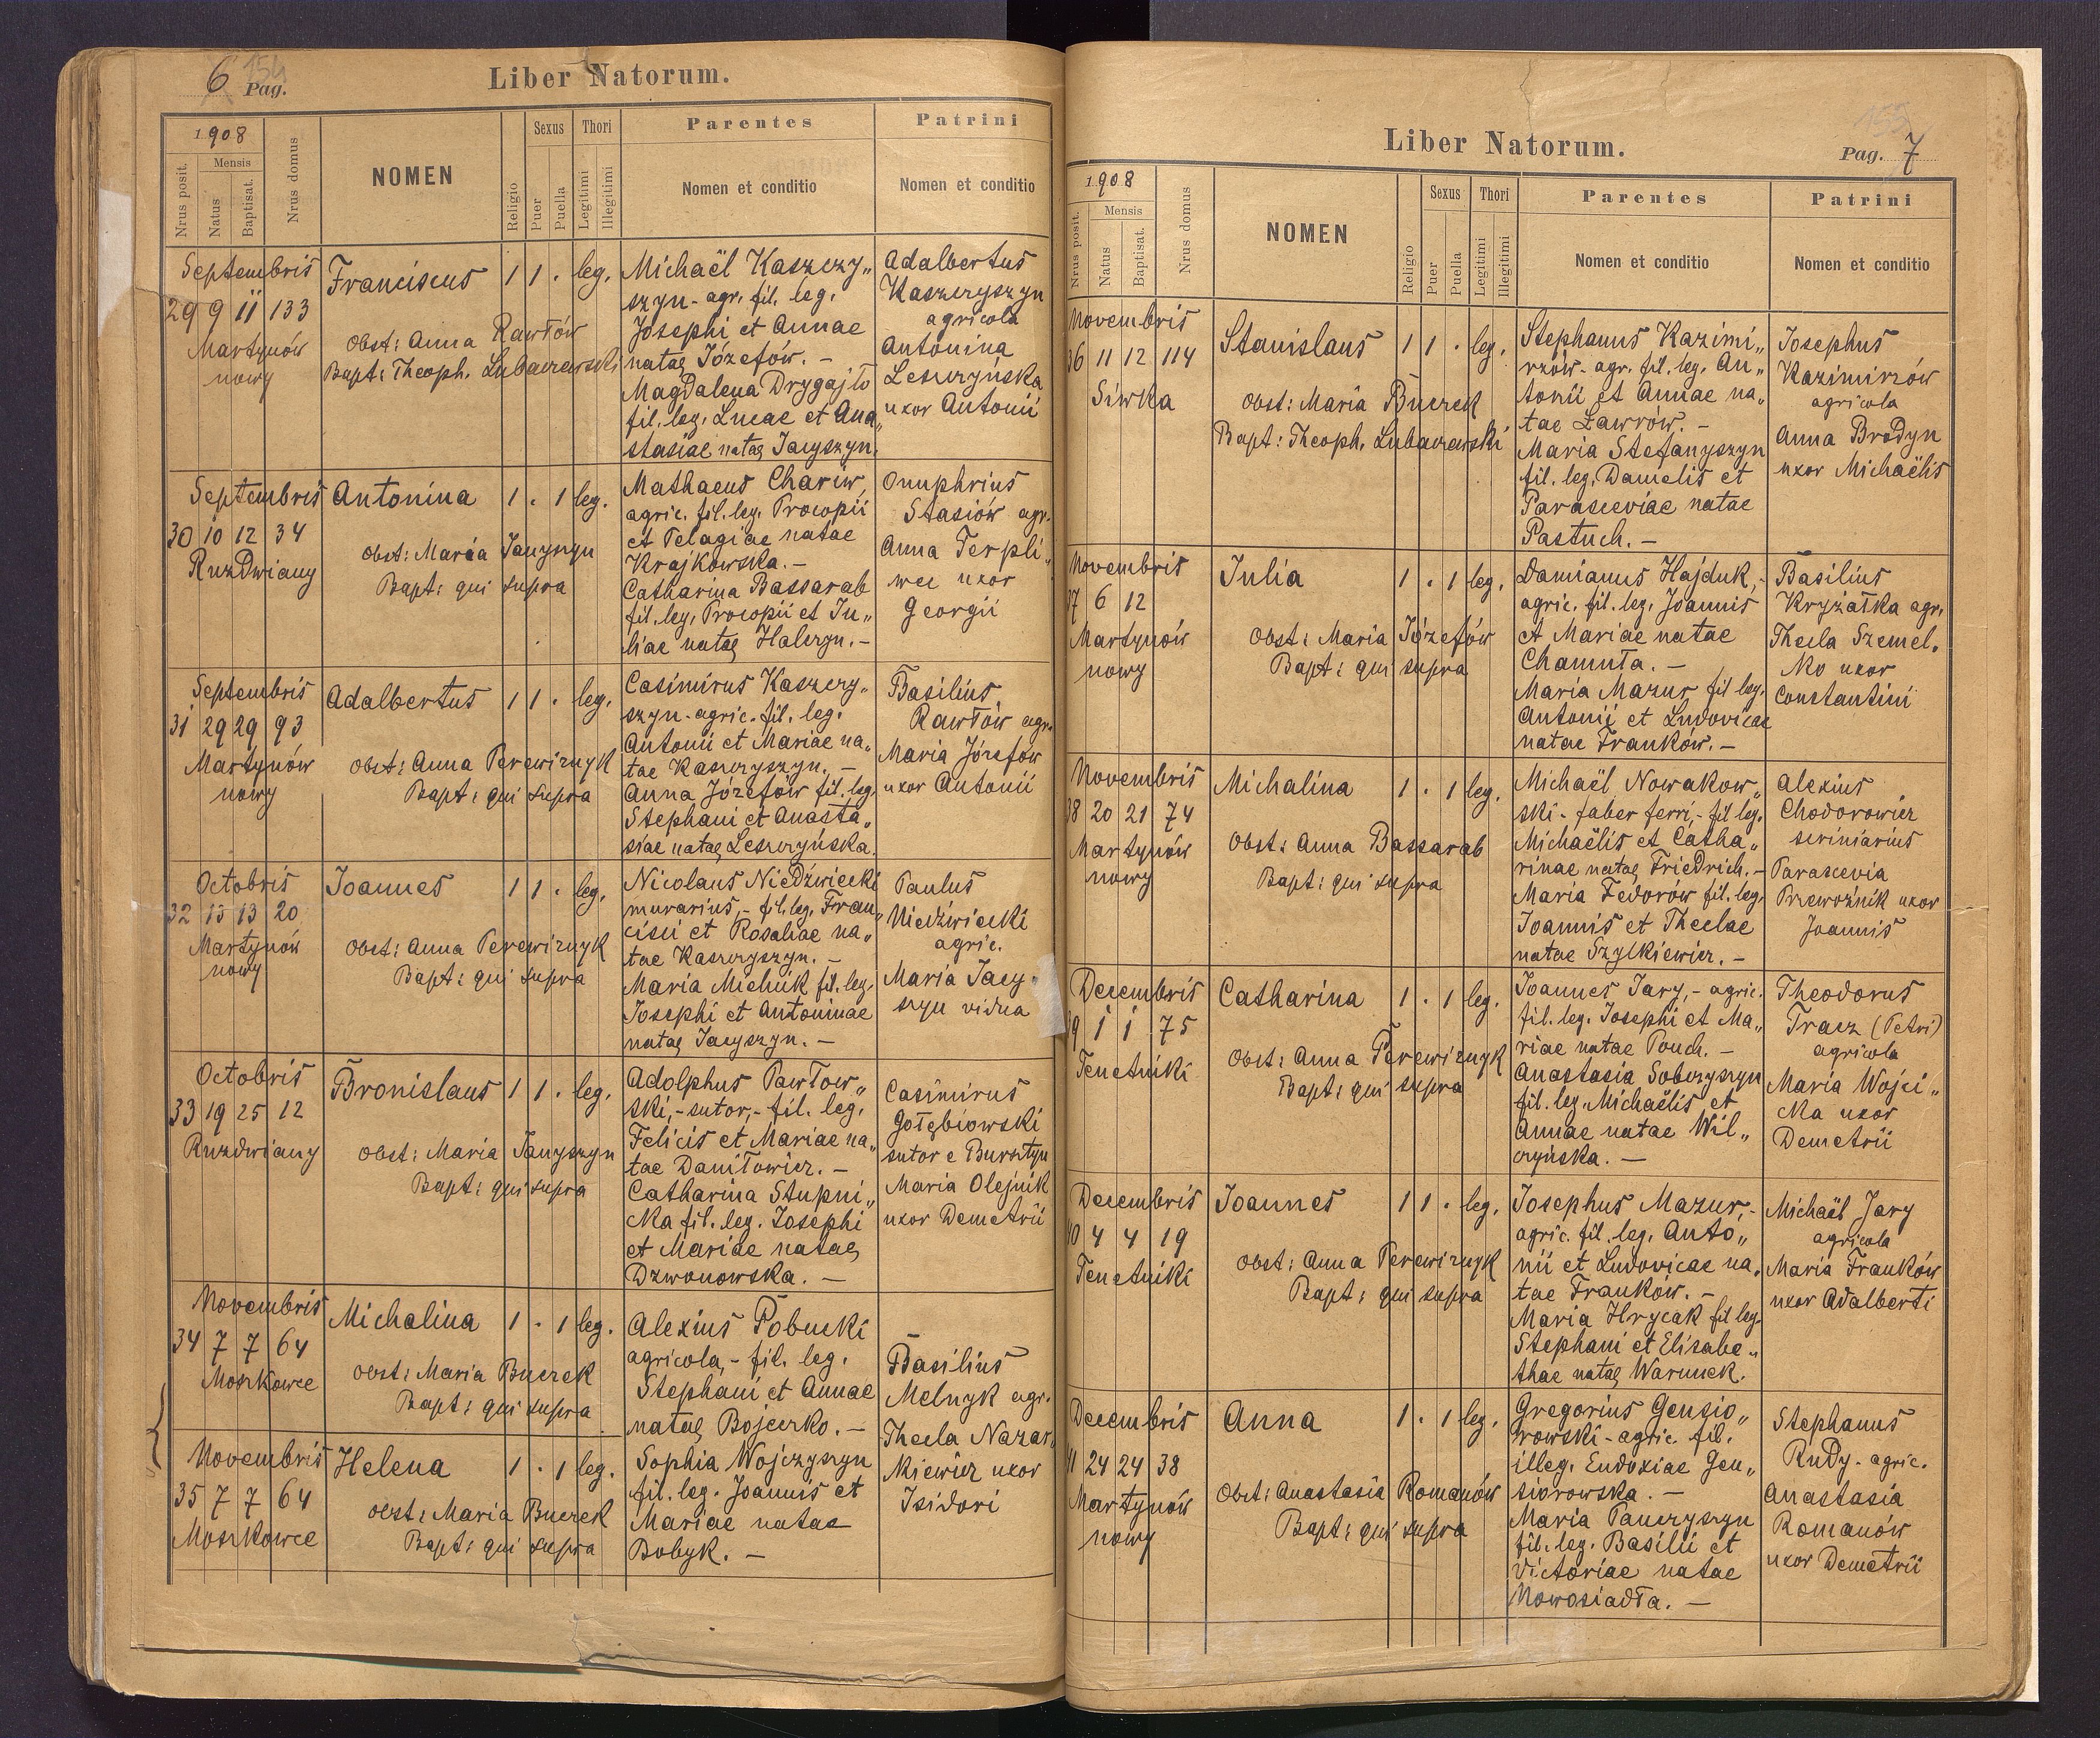 6 154
Pag.
Liber Natorum.
1908
Nrus posit.
Mensis
Natus
Baptisat.
Nrus domus
NOMEN
Religio
Sexus
Puer
Puella
Thori
Legitimi
Illegitimi
Parentes
Nomen et conditio
Patrini
Nomen et conditio
Septembris
29 9 11 133
Martynów
nowy
Franciscus 1 1 . leg.
Obst: Anna Rawłów
Bapt: Theoph. Lubaczewski
Michaël Kaszczy„
szyn - agr. fil. leg.
Josephi et Annae
natae Józefów. -
Magdalena Drygajło
fil. leg. Lucae et Ana„
stasiae natae Jacyszyn.
Adalbertus
Kaszczyszyn
agricola
Antonina
Leszczyńska
uxor Antonii
Septembris
30 10 12 34
Ruzdwiany
Antonina 1 . 1 leg.
Obst: Maria Janyszyn
Bapt: qui supra
Mathaeus Chariw,
agric. fil. leg. Procopii
et Pelagiae natae
Krajkowska. -
Catharina Bassarab
fil. leg. Procopii et Ju„
liae natae Halczyn. -
Onuphrius
Stasiów agr.
Anna Terpli„
wec uxor
Georgii
Septembris
31 29 29 93
Martynów
nowy
Adalbertus 1 1 . leg.
Obst: Anna Perewiznyk
Bapt: qui supra
Casimirus Kaszczy„
szyn - agric. fil. leg.
Antonii et Mariae na„
tae Kaszczyszyn. -
Anna Józefów fil. leg.
Stephani et Anasta„
siae natae Leszczyńska.
Basilius
Rawłów agr.
Maria Józefów
uxor Antonii
Octobris
32 13 13 20
Martynów
nowy
Joannes 1 1 . leg.
Obst: Anna Perewiznyk
Bapt: qui supra
Nicolaus Niedźwiecki
murarius, - fil. leg. Fran„
cisci et Rosaliae na„
tae Kaszczyszyn. -
Maria Michnik fil. leg.
Josephi et Antoninae
natae Jacyszyn. -
Paulus
Niedźwiecki
agric.
Maria Jacy„
szyn vidua
Octobris
33 19 25 12
Ruzdwiany
Bronislaus 1 1 . leg.
Obst: Maria Janyszyn
Bapt: qui supra
Adolphus Pawłow„
ski, - sutor, - fil. leg.
Felicis et Mariae na„
tae Daniłowicz. -
Catharina Stupni„
cka fil. leg. Josephi
et Mariae natae
Dzwonowska. -
Casimirus
Gołębiowski
sutor e Bursztyn
Maria Olejnik
uxor Demetrii
Novembris
34 7 7 64
Moszkowce
Michalina 1 . 1 leg.
Obst: Maria Buczek
Bapt: qui supra
Alexius Pobucki
agricola, - fil. leg.
Stephani et Annae
natae Bojeczko. -
Basilius
Melnyk agr.
Thecla Nazar„
kiewicz uxor
Isidori
Novembris
35 7 7 64
Moszkowce
Helena 1 . 1 leg.
Obst: Maria Buczek
Bapt: qui supra
Sophia Wojczyszyn
fil. leg. Joannis et
Mariae natae
Bobyk. -
Liber Natorum.
Pag. 7
1908
Nrus posit.
Mensis
Natus
Baptisat.
Nrus domus
NOMEN
Religio
Sexus
Puer
Puella
Thori
Legitimi
Illegitimi
Parentes
Nomen et conditio
Patrini
Nomen et conditio
Novembris
36 11 12 114
Siwka
Stanislaus 1 1 . leg.
Obst: Maria Buczek
Bapt: Theoph. Lubaczewski
Stephanus Kazimi„
rzów - agr. fil. leg. An„
tonii et Annae na„
tae Ławrów. -
Maria Stefanyszyn
fil. leg. Danielis et
Parasceviae natae
Pastuch. -
Josephus
Kazimirzów
agricola
Anna Brodyn
uxor Michaëlis
Novembris
37 6 12
Martynów
nowy
Julia 1 . 1 leg.
Obst: Maria Józefów
Bapt: qui supra
Damianus Hajduk, -
agric. fil. leg. Joannis
et Mariae natae
Chamuła. -
Maria Mazur fil leg.
Antonii et Ludovicae
natae Franków. -
Basilius
Kryżałka agr.
Thecla Szemel.
ko uxor
Constantini
Novembris
38 20 21 74
Martynów
nowy
Michalina 1 . 1 leg.
Obst: Anna Bassarab
Bapt: qui supra
Michaël Nowakow„
ski - faber ferri, - fil leg.
Michaëlis et Catha„
rinae natae Friedrich. -
Maria Fedorów fil. leg.
Joannis et Theclae
natae Szylkiewicz. -
Alexius
Chodorowicz
scriniarius
Parascevia
Przewoźnik uxor
Joannis
Decembris
39 1 1 75
Tenetniki
Catharina 1 . 1 leg.
Obst: Anna Perewiznyk
Bapt: qui supra
Joannes Jary, - agric.
fil. leg. Josephi et Ma„
riae natae Pouch. -
Anastasia Sobczyszyn
fil. leg. Michaëlis et
Annae natae Wil„
czyńska. -
Theodorus
Tracz (Petri)
agricola
Maria Wojci„
cka uxor
Demetrii
Decembris
40 4 4 19
Tenetniki
Joannes 1 1 . leg.
Obst: Anna Perewiznyk
Bapt: qui supra
Josephus Mazur, -
agric. fil. leg. Anto„
nii et Ludovicae na„
tae Franków. -
Maria Hrycak fil leg.
Stephani et Elisabe„
thae natae Warunek.
Michaël Jary
agricola
Maria Franków
uxor Adalberti
Decembris
41 24 24 38
Martynów
nowy
Anna 1 . 1 leg.
Obst: Anastasia Romanów
Bapt: qui supra
Gregorius Gensio„
rowski - agric. fil.
illeg. Eudoxiae Gen„
siorowska. -
Maria Panczyszyn
fil. leg. Basilii et
Victoriae natae
Nowosiadła. -
Stephanus
Rudy - agric.
Anastasia
Romanów
uxor Demetrii